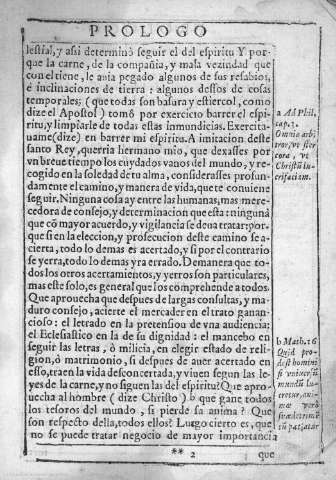 PROLOGO
lestial, y assi determinò seguir el del espiritu Y por-
que la carne, de la compañia, y mala vezindad que
con el tiene, le auia pegado algunos de sus resabios,
e inclinaciones de tierra: algunos dessos de cosas
temporales; (que todas son basura y estiercol, como
dize el Apostol) tomô por exercicio barrer el espi-
ritu, y limpiarle de todas estas inmundicias. Exercita-
uame(dize) en barrer mi espiritu. A imitacion deste
santo Rey, querria hermano mio, que dexasses por
vn breue tiempo los cuydados vanos del mundo, y re-
cogido en la soledad de tu alma, considerasses profun-
damente el camino, y manera de vida, que te conuiene
seguir. Ninguna cosa ay entre las humanas, mas mere-
cedora de consejo, y determinacion que esta: ninguna
que cō mayor acuerdo, y vigilancia se deua tratar: por-
que si en la eleccion, y prosecucion deste camino se a-
cierta, todo lo demas es acertado, y si por el contrario
se yerra, todo lo demas yra errado. De manera que to-
dos los otros acertamientos, y yerros son particulares,
mas este solo, es general que los comprehende a todos.
Que aprouecha que despues de largas consultas, y ma-
duro consejo, acierte el mercader en el trato ganan-
cioso: el letrado en la pretension de vna audiencia:
el Eclesiastico en la de su dignidad: el mancebo en
seguir las letras, ò milicia, en elegir estado de reli-
gion, ò matrimonio, si despues de auer acertado en
esso, traen la vida desconcertada, y viuen segun las le-
yes de la carne, y no siguen las del espiritu? Que apro-
uecha al hombre (dize Christo) b que gane todos
los tesoros del mundo, si pierde su anima? Que
son respecto della, todos ellos? Luego cierto es, que
no se puede tratar negocio de mayor importancia
** 2
que
a Ad Phil.
cap. 3.
Omnia arbi
tror, vt ster
cora, vt
Christū lu-
crifaciam.
b Math. 16
Quid pro-
dest homini
si vniuersū
mundū lu-
cretur, ani-
mæ verò
suæ detrimē
tū patiatur